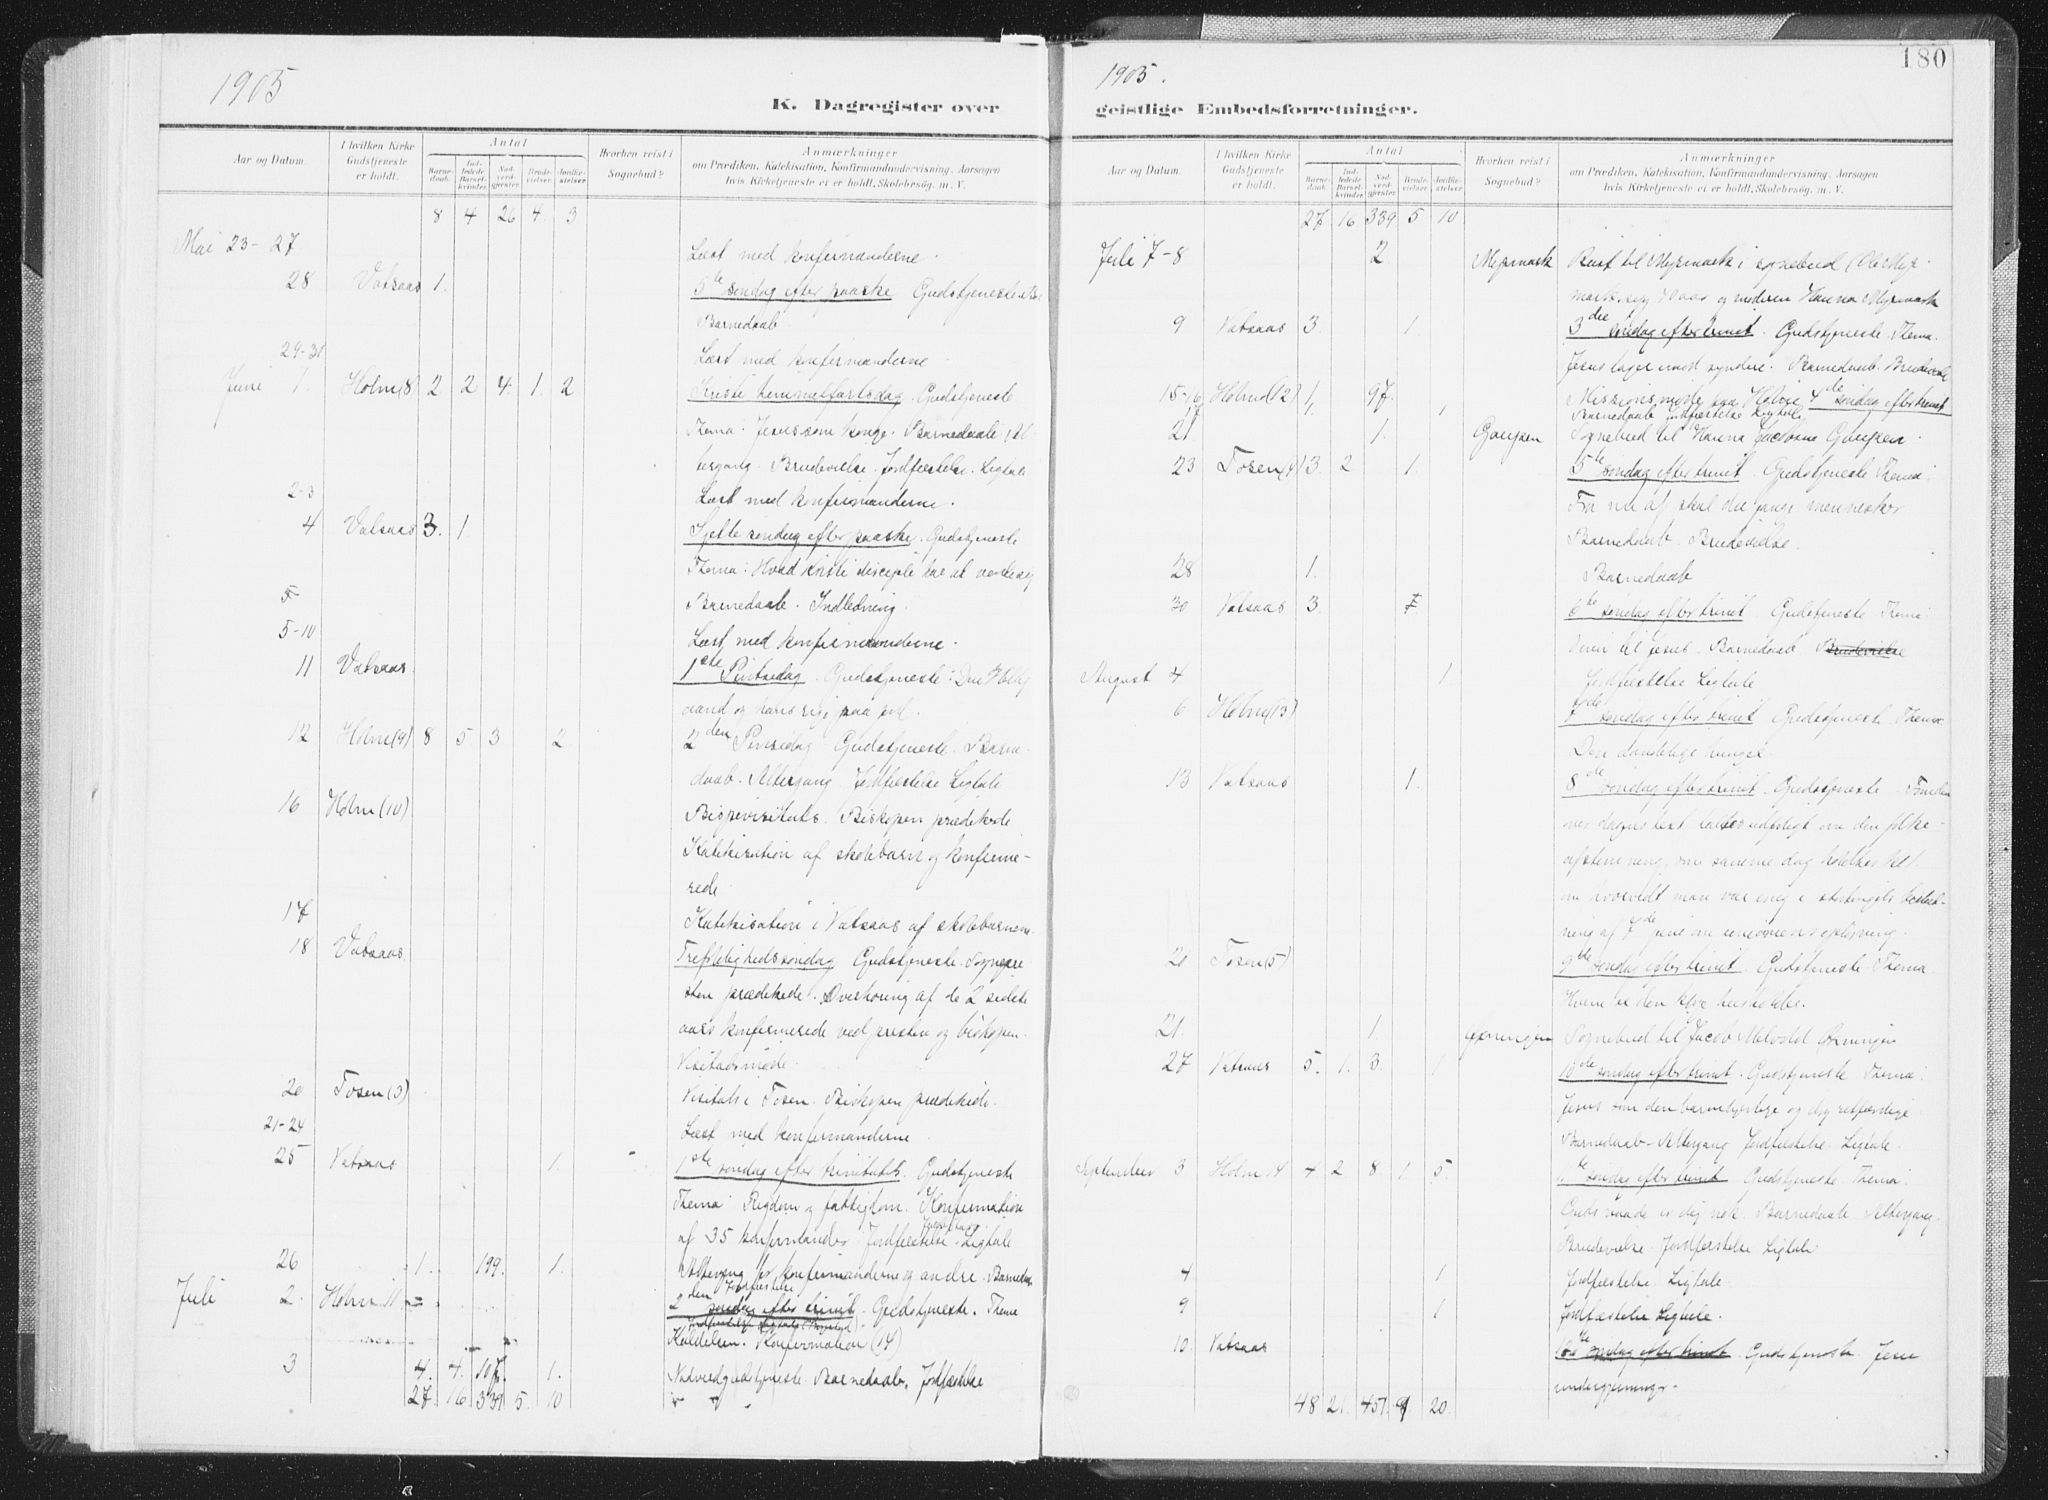 1905
K. Dagregister over
Aar og Datum.
I hvilken Kirke Gudstjeneste er holdt.
Antal
Barnedaab.
Indledede Barselkvinder.
Nadverdgjester.
Brudevielser.
Jordfæstelser.
Hvorhen reist i Sognebud?
Anmærkninger
om Prædiken, Katekisation, Konfirmandundervisning, Aarsagen
hvis Kirketjeneste ei er holdt, Skolebesøg. m. V.
8 4 26 4. 3
Mai 23-27 Læst med konfirmanderne.
28 Vatsaas 1. 5te søndag efter paaske Gudstjeneste
Barnedaab.
29-31 Læst med konfirmanderne
Juni 1. Holm (8) 2 2 4. 1. 2 Kristi himmelfartsdag. Gudstjeneste
Thema: Jesus som konge. Barnedaab. Al-
tergang. Brudevielse. Jordfæstelse. Ligtale
2-3 Læst med konfirmanderne.
4 Vatsaas 3. 1. Sjette søndag efter paaske. Gudstjeneste
Thema: Hvad Kristi disciple har at
5 Barnedaab. Indledning.
5-10 Læst med konfirmanderne.
11 Vatsaas 1ste Pintsedag. Gudstjeneste: Den Hellig
aand og hans paa jord.
12 Holm (9) 8 5 3 2 2den Pinsedag Gudstjeneste. Barne-
daab. Altergang. Jordfæstelse Ligtale
16 Holm (10) Bispevisitats. Biskopen prædikede
Katekisation af skolebarn og konfirme-
rede.
17 Katekisation i Vatsaas af skolebarnene
18 Vatsaas. Trefoldighedssøndag Gudstjeneste. Sognepre
sten prædikede. Overhøring af de 2 sidste
aars konfirmerede ved presten og biskopen.
Visitasmøde.
20 Tosen (3) Visitats i Tosen. Biskopen prædikede.
21-24 Læst med konfirmanderne
25 Vatsaas 1. 1ste søndag efter trinitatis. Gudstjeneste
Thema: Rigdom og fattigdom. Konfirmation
af 35 konfirmander. Jordfæstelse. Ligtale
26 1. 199. 1. Altergang for konfirmanderne og andre. Barnedaab
Jordfæstelse
Juli 2. Holm 11 2den søndag efter trinit. Gudstjeneste. Thema
Kaldelsen. Konfirmation (14)
3 4. 4. 107. 1. Nadverdgudstjeneste. Barnedaab. Jordfæstelse
27. 16 339 5. 10
180
1905.
geistlige Embedsforretninger.
Aar og Datum.
I hvilken Kirke Gudstjeneste er holdt.
Antal
Barnedaab.
Indledede Barselkvinder.
Nadverdgjester.
Brudevielser.
Jordfæstelser.
Hvorhen reist i Sognebud?
Anmærkninger
om Prædiken, Katekisation, Konfirmandundervisning, Aarsagen
hvis Kirketjeneste ei er holdt, Skolebesøg. m. V.
27 16 339 5 10
Juli 7-8 2. Myrmark Reist til Myrmark i sognebud (Ole Myr-
mark, 70 aar og moderen Hanna Myrmark
9 Vatsaas 3. 1. 3die søndag efter trinit. Gudstjeneste. Thema.
Jesus tager mod syndere. Barnedaab. Brudevielse
15-16 Holm (12) 1, 97. Missionsmøde paa Holm 4de søndag efter trinit
17 1. 1 Barnedaab Jordfæstelse Ligtale
21 1. Gaupen Sognebud til Hanna Jacobsen Gaupen.
23 Tosen (4) 3. 2 1. 5te søndag efter trinit. Gudstjeneste Thema:
Fra nu af skal du fange mennesker
Barnedaab. Brudevielse.
28 1. Barnedaab
30 Vatsaas 3. 6te søndag efter trinit. Gudstjeneste. Thema:
Veien til Jesus. Barnedaab Brudevielse
August 4 1 Jordfæstelse Ligtale
6 Holm (13) 7de søndag efter trinit Gudstjeneste. Thema
13 Vatsaas 1. 8de søndag efter trinit. Gudstjeneste.
over dagens text om den folke-
afstemning, om samme dag
om hvorvidt man var enig i stortingets beslut-
ning af 7de juni om unionens opløsning.
20 Tosen (5) 9de søndag efter trinit. Gudstjeneste. Thema
Hvem er den husholder.
21. 1. Sognebud til Jacob
27 Vatsaas 5. 1. 3. 1 10de søndag efter trinit. Gudstjeneste. Thema:
Jesus som den barmhjertige og dog retfærdige.
Barnedaab. Altergang Jordfæstelse. Ligtale.
September 3 Holm 14 4. 2 8 1. 5. søndag efter trinit. Gudstjeneste. Thema:
Guds naade er dig nok. Barnedaab. Altergang.
Brudevielse. Jordfæstelse Ligtale
4 1 Jordfæstelse. Ligtale.
9 1 Jordfæstelse Ligtale.
10. Vatsaas søndag efter trinit. Gudstjeneste. Jesu
undergjerninger.
48 21. 451. 9 20.